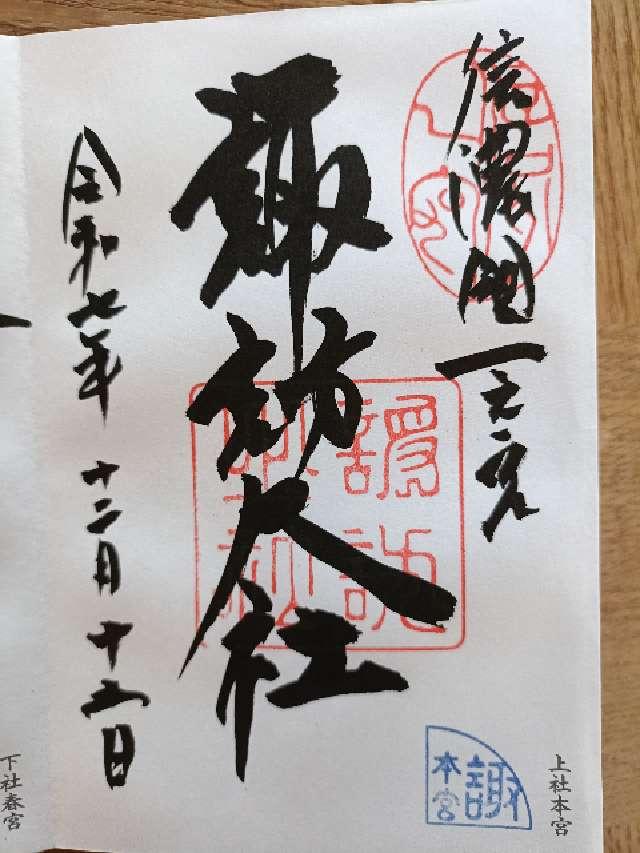 信濃國一之宮
諏訪大社
令和七年 十二月 十五日
諏訪
本宮
上社本宮
下社春宮